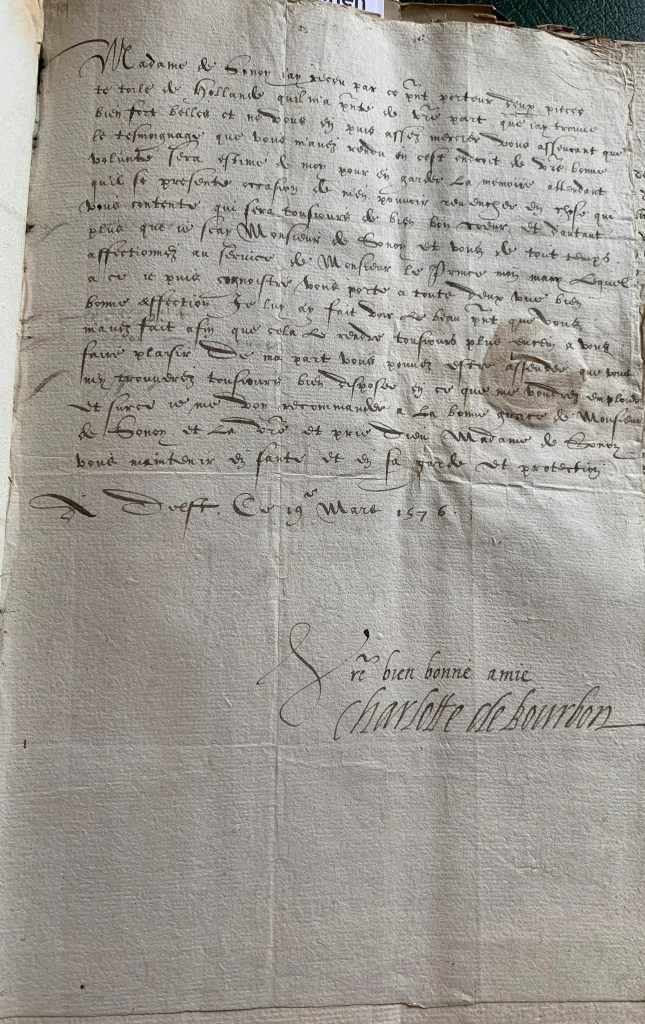 Madame de Sonoy jay receu par ce pnt porteur deux pieces
de toile de Hollande quil m'a pnte de vre part que jay trouve
bien fort belles et ne vous en puis assez mercier vous asseurant que
le tesmoignage que vous m'avez rendu en cest endroit de vre bonne
volunte sera estime de moy pour en garder la memoire attendant
quil se presente occasion de men pouvoir revencher en chose qui
vous contente qui sera tousiours de bien bon coeur et dautant
plus que ie scay Monsieur de Sonoy et vous de tout temps
affectionnez au service de Monsieur le Prince mon mary Lequel
a ce ie puis cognoistre vous porte a toute deux une bien
bonne affection Je luy ay fait voir le beau pnt que vous
mavez fait afin que cela le rende tousiours plus a vous
faire plaisir De ma part vous pouvez estre asseuree que vous
my trouverez tousiours bien disposee en ce que me voudrez emploier
Et surce ie me recommander a la bonne grace de Monsieur
de Sonoy et la vre et prie Dieu Madame de Sonoy
vous maintenir en sante et en sa garde et protection
A Delft. Ce 19e Mars 1576.
Vre bien bonne amie
Charlotte de bourbon